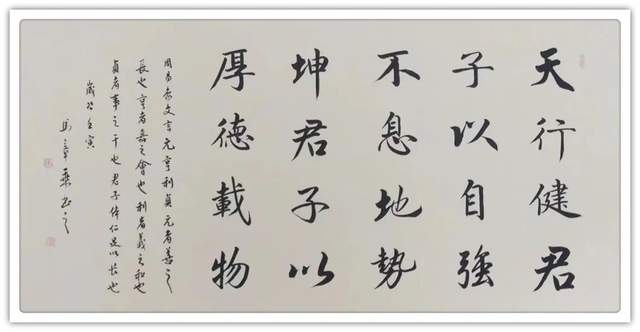 天行健君
子以自強
不息地勢
坤君子以
厚德載物
周易文言元亨利貞元者善之
長也亨者嘉之會也利者義之和也
貞者事之干也君子体仁足以長也
歲次壬寅
章